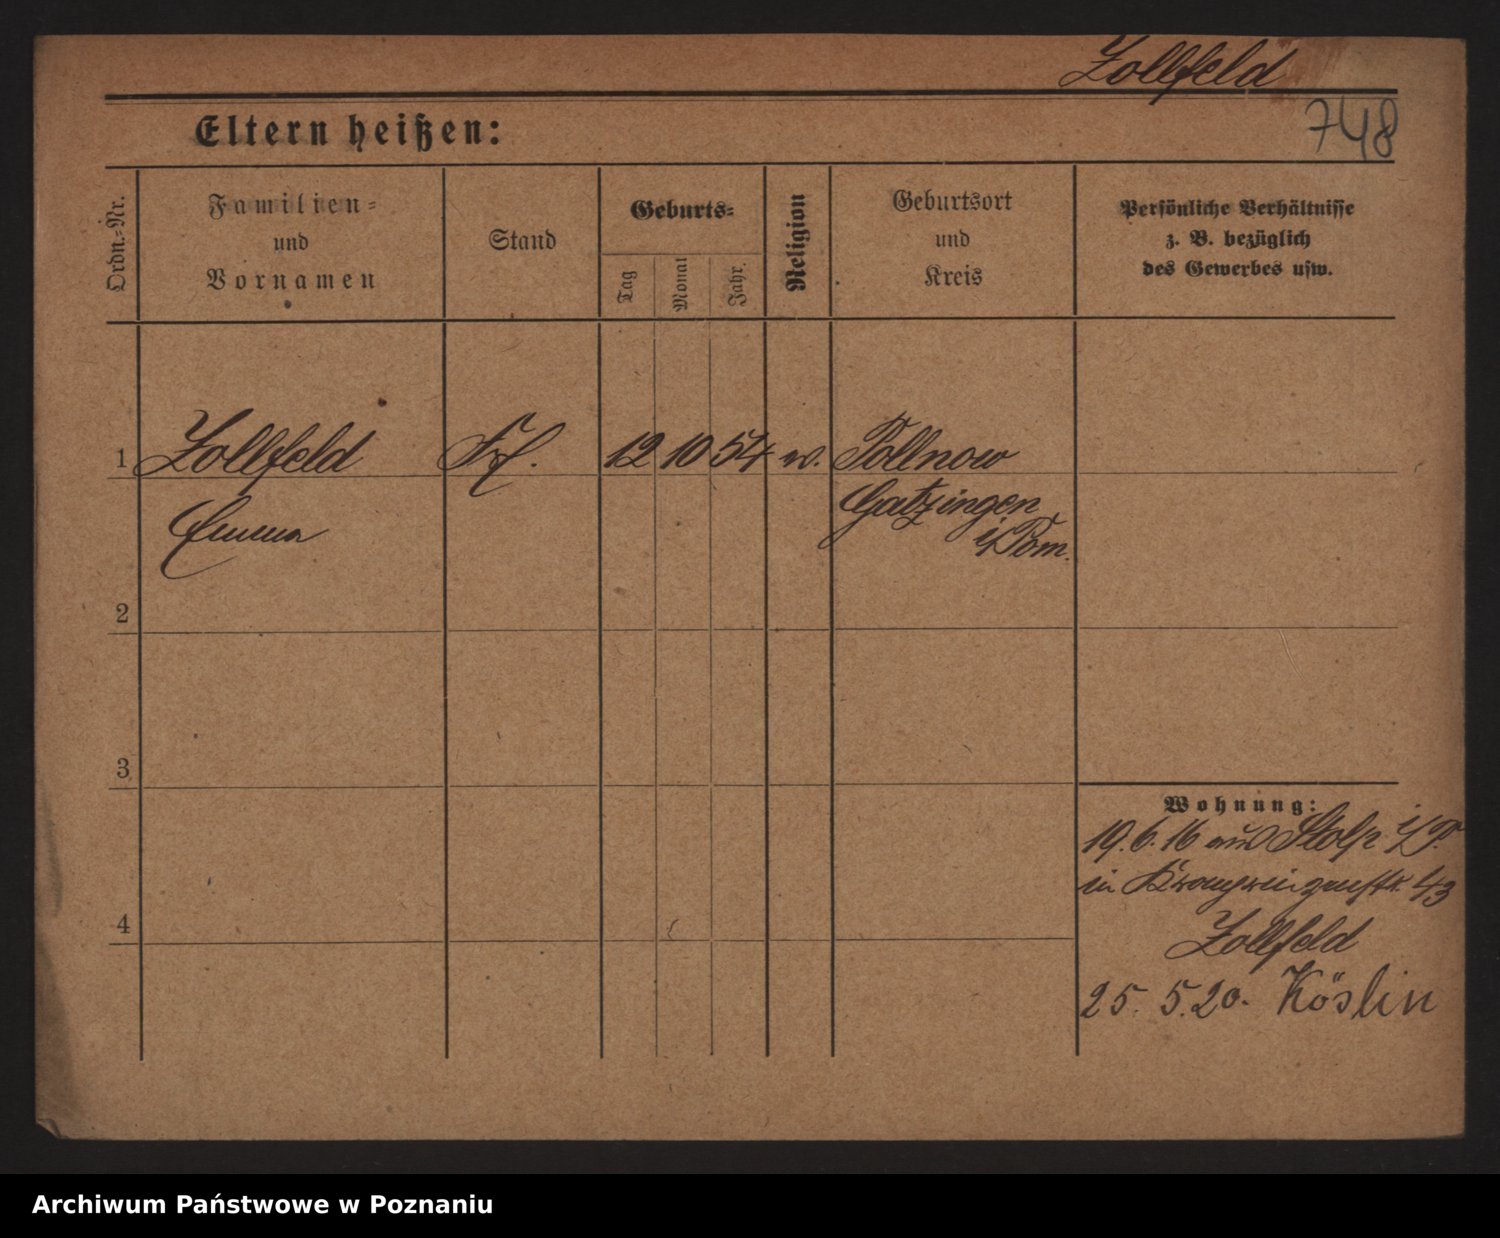 Zollfeld
748
Eltern heißen:
Ordn.=Nr.
Familien=
und
Vornamen
Stand
Geburts=
Tag
Monat
Jahr.
Religion
Geburtsort
und
Kreis
Persönliche Verhältnisse
z. B. bezüglich
des Gewerbes usw.
1 Zollfeld Frl. 12 10 54 ev. Pollnow
Emma Gatzingen
i/Pom.
2
3
4
Wohnung:
19.6.16 aus Stolp i/P.
in Kronprinzenstr. 43
Zollfeld
25. 5.20. Köslin
Archiwum Państwowe w Poznaniu